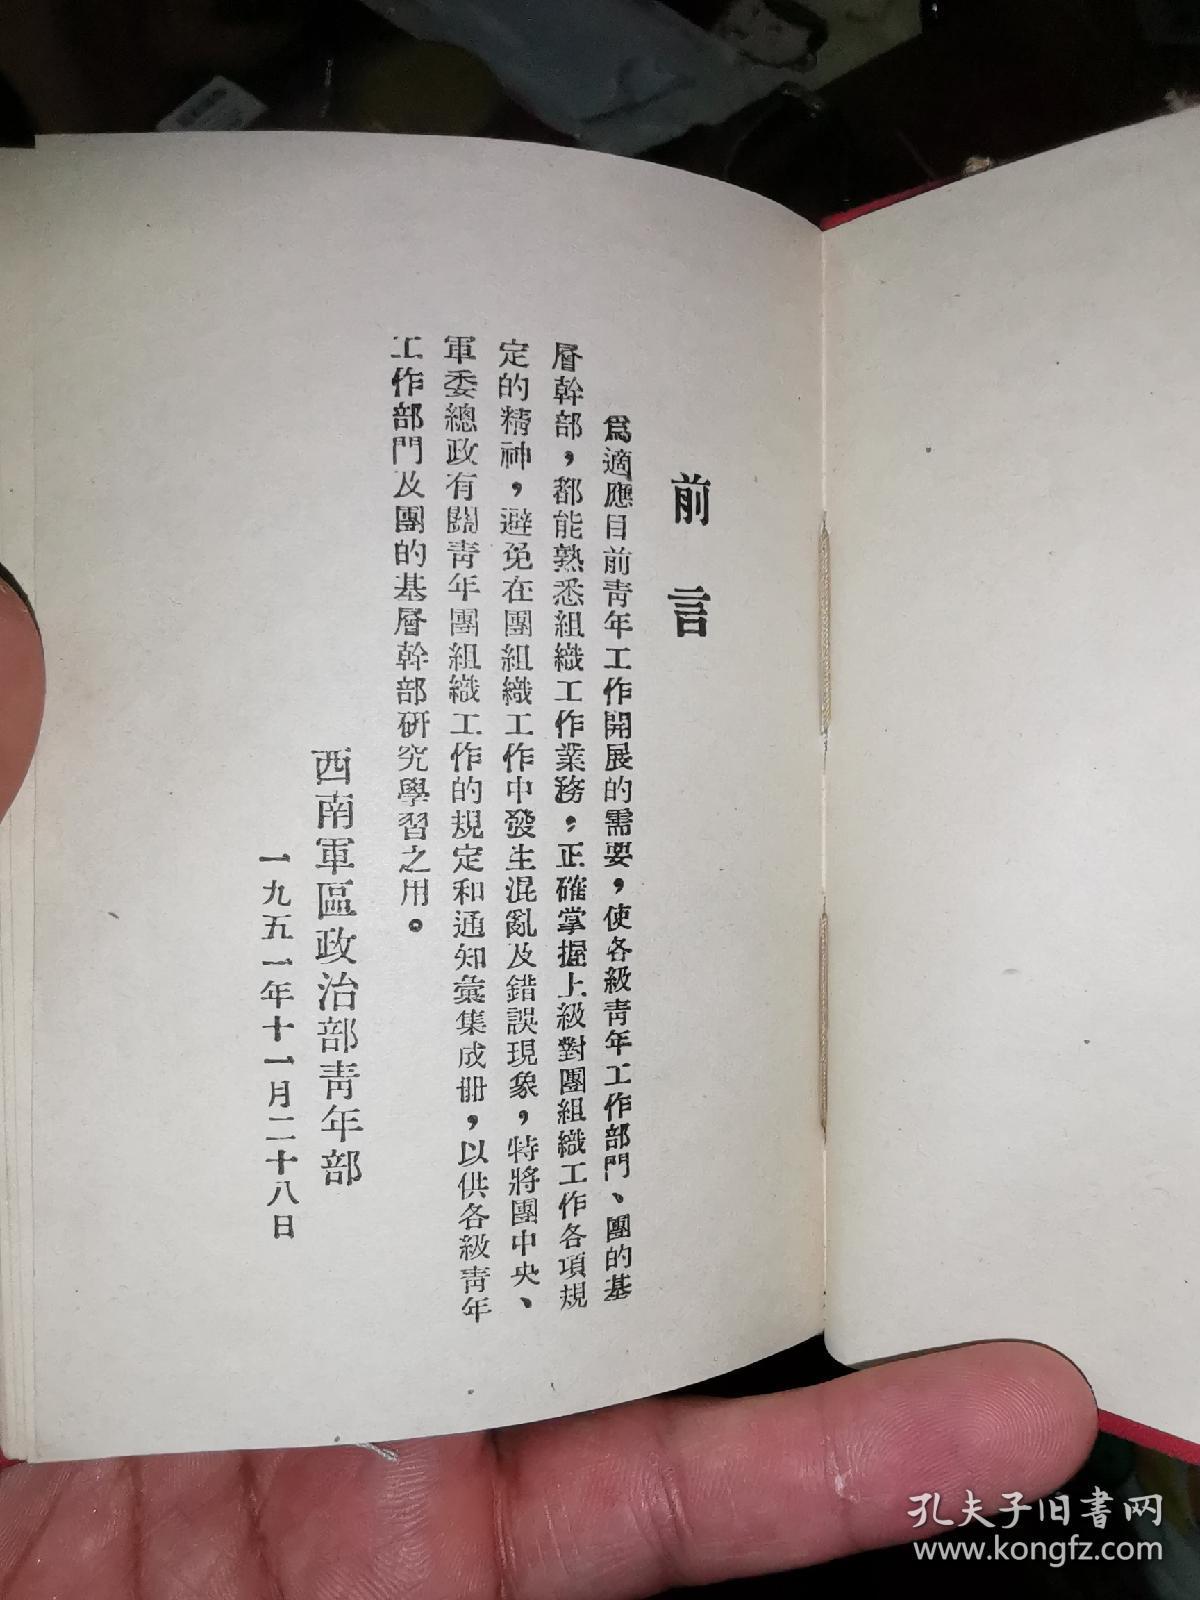 前言
爲適應目前靑年工作開展的需要，使各級靑年工作部門、團的基
層幹部，都能熟悉組織工作業務，正確掌握上級對團組織工作各項規
定的精神，避免在團組織工作中發生混亂及錯誤現象，特將團中央、
軍委總政有關靑年團組織工作的規定和通知彙集成册，以供各級靑年
工作部門及團的基層幹部硏究學習之用。
西南軍區政治部靑年部
一九五一年十一月二十八日
孔夫子旧书网
www.kongfz.com